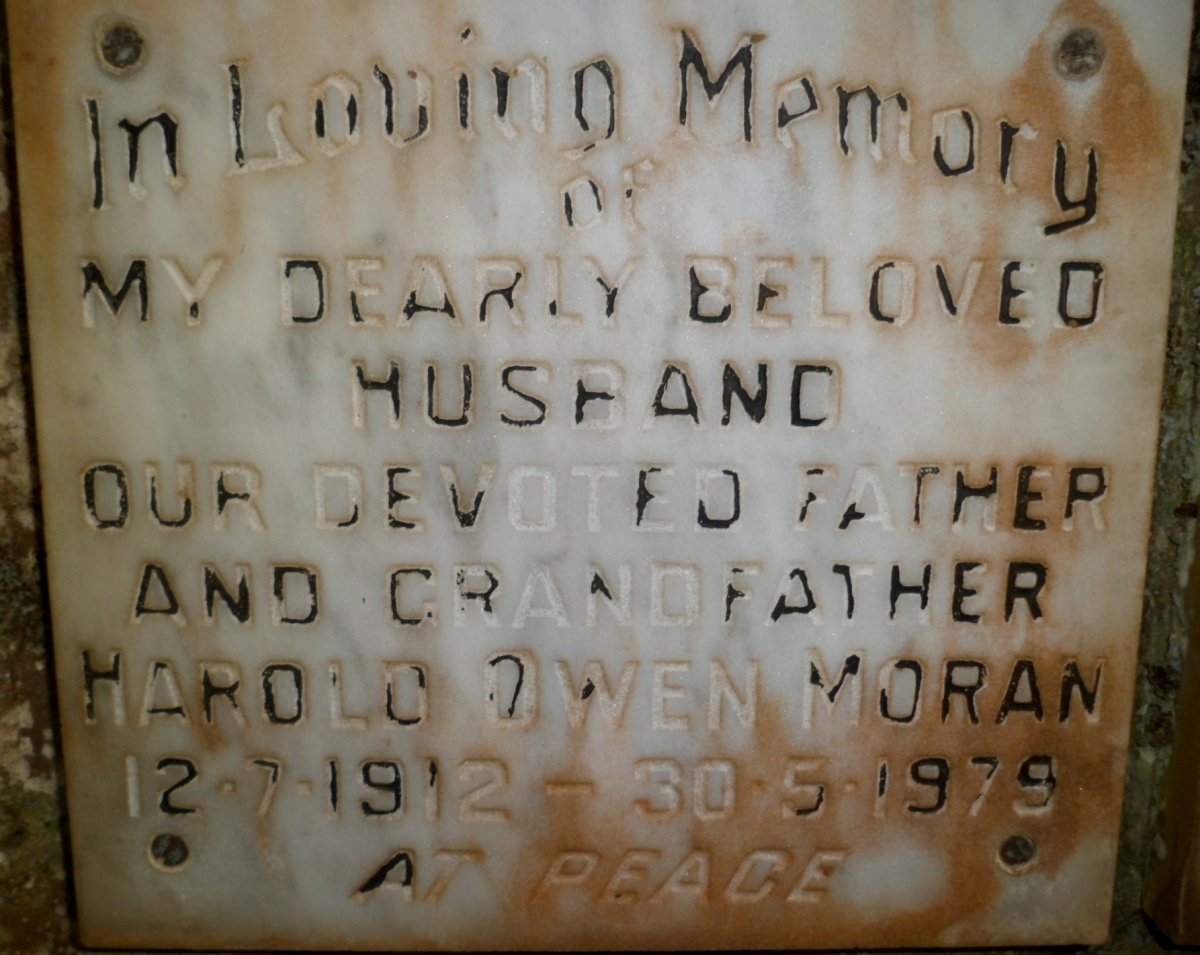 In Loving Memory
of
MY DEARLY BELOVED
HUSBAND
OUR DEVOTED FATHER
AND GRANDFATHER
HAROLD OWEN MORAN
12·7·1912 – 30·5·1979
AT PEACE